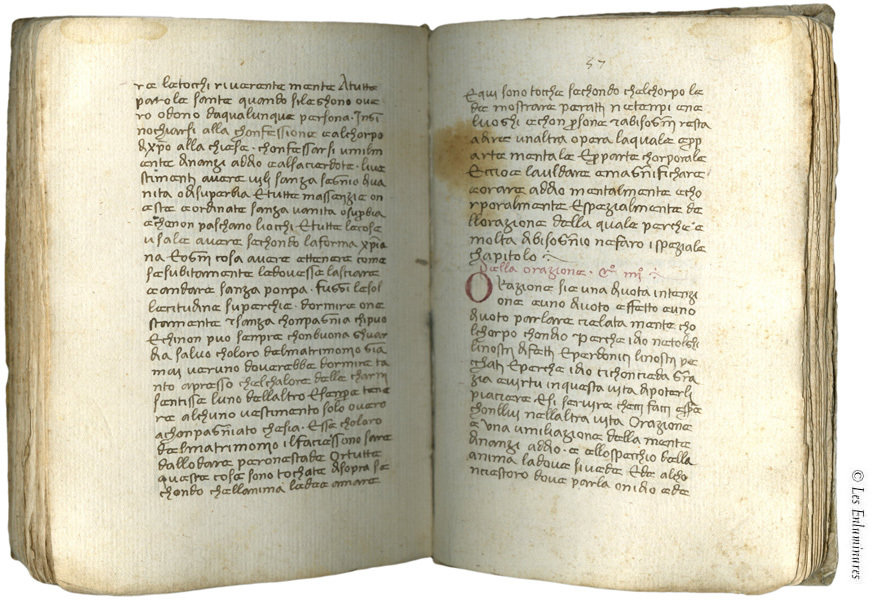 re le tochi riverente mente A tutte
parole sante quando si leghono ove
ro odono da qualunque persona. Insi
nochiarsi alla chonfessione e al chorpo
di xpo alla chiesa. chonfessarsi umilm
ente dinanzi addio e al sacierdote. live
stimenti avere vili sanza segnio di va
nita o di superbia E tutte massenzie on
este e ordinate sanza vanita o supbia
e che non paschano liochi E tutte le chose
usale avere sechondo la forma xpia
na E ogni cosa avere e ttenere come
se subitamente la dovesse lasciare
e andare sanza ponpa. fussi le sol
lecitudine superchie. dormire one
stamente e sanza chonpagnia chi puo
E chi non puo senpre chon buona ghuar
dia salvo choloro del matrimonio gia
mai veruno doverebbe dormire ta
nto apresso che l chalore delle charni
sentisse luno dellaltro E senpre tene
re alchuno vestimento solo overo
achonpagniato che sia. E sse choloro
del matrimonio il faciessono sare
da llodare per onestade Or tutte
queste cose sono tochate di sopra se
chondo che ll anima le dee amare
57
E qui sono toche sechondo che l chorpo le
dee mostrare per atti ne tenpi e ne
luoghi e chon psone e a bisogni resta
a dire unaltra opera la quale e pp
arte mentale E pparte chorporale
E ccioe laulldare e magnifichare
e orare addio mentalmente e cho
rporalmente E spezialmente de
ll orazione della quale perche e
molta di bisognio ne faro ispeziale
chapitolo
Della orazione.
Orazione sie una divota intenzi
one e uno divoto effetto e uno
divoto parlare cielata mente cho
l chorpo chon dio Perche idio ne tolghi
li nostri difetti E perdonici li nostri pe
chati E perche idio ci chonceda gra
zia e virtu in questa vita di poterli
piaciere E si servire che ci facci essere
chon llui nell altra vita Orazione
e una umiliazione della mente
dinanzi addio. e e llo spechio della
anima la dove si vede E de alcho
ncestoro dove parla con dio e de
© Les Enluminures